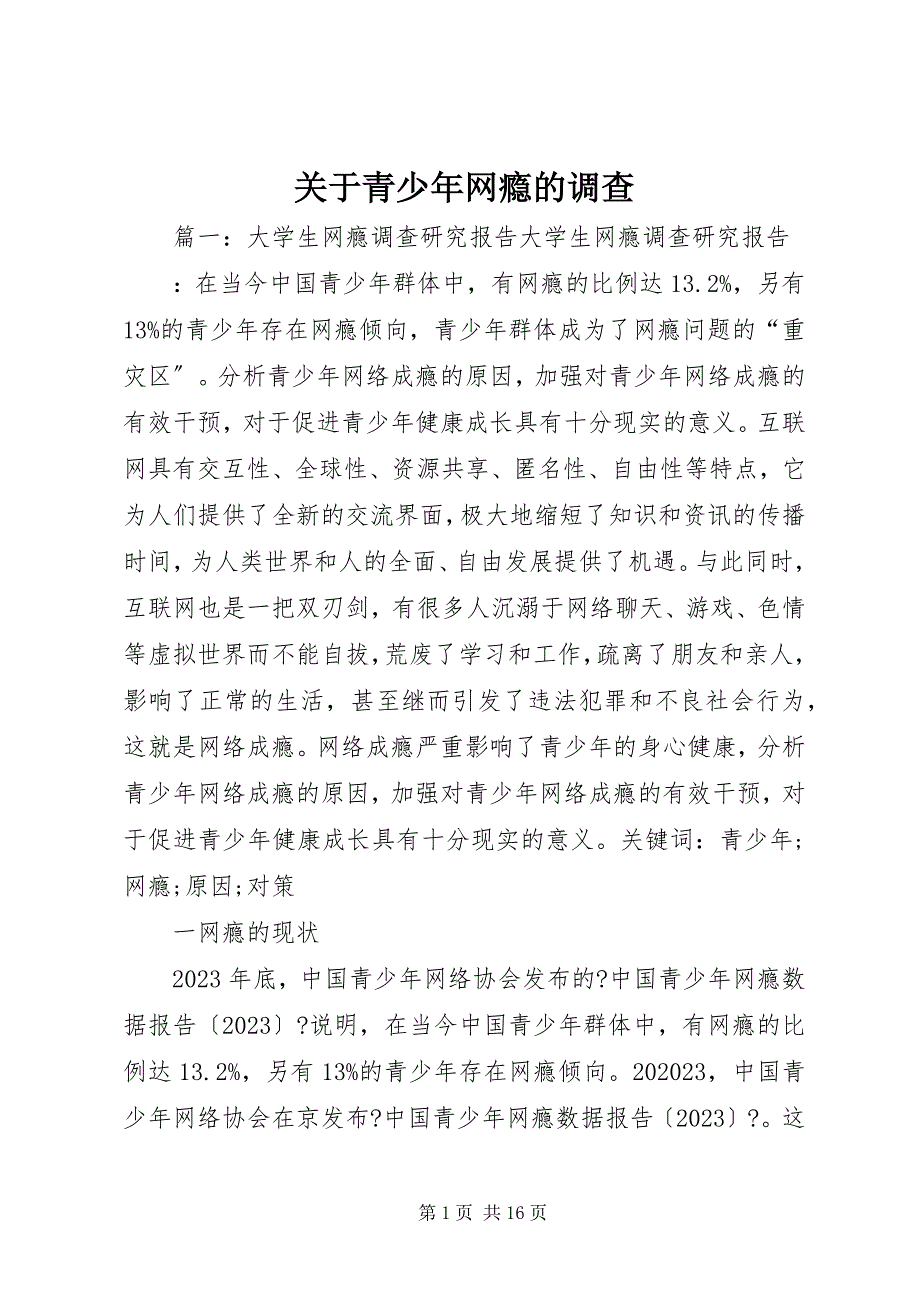 关于青少年网瘾的调查
篇一：大学生网瘾调查研究报告大学生网瘾调查研究报告
：在当今中国青少年群体中，有网瘾的比例达 13.2%，另有
13%的青少年存在网瘾倾向，青少年群体成为了网瘾问题的“重
灾区〞。分析青少年网络成瘾的原因，加强对青少年网络成瘾的
有效干预，对于促进青少年健康成长具有十分现实的意义。互联
网具有交互性、全球性、资源共享、匿名性、自由性等特点，它
为人们提供了全新的交流界面，极大地缩短了知识和资讯的传播
时间，为人类世界和人的全面、自由发展提供了机遇。与此同时，
互联网也是一把双刃剑，有很多人沉溺于网络聊天、游戏、色情
等虚拟世界而不能自拔，荒废了学习和工作，疏离了朋友和亲人，
影响了正常的生活，甚至继而引发了违法犯罪和不良社会行为，
这就是网络成瘾。网络成瘾严重影响了青少年的身心健康，分析
青少年网络成瘾的原因，加强对青少年网络成瘾的有效干预，对
于促进青少年健康成长具有十分现实的意义。关键词：青少年;
网瘾;原因;对策
一网瘾的现状
2023 年底，中国青少年网络协会发布的?中国青少年网瘾数
据报告〔2023〕?说明，在当今中国青少年群体中，有网瘾的比
例达 13.2%，另有 13%的青少年存在网瘾倾向。202023，中国青
少年网络协会在京发布?中国青少年网瘾数据报告〔2023〕?。这
第 1 页 共 16 页